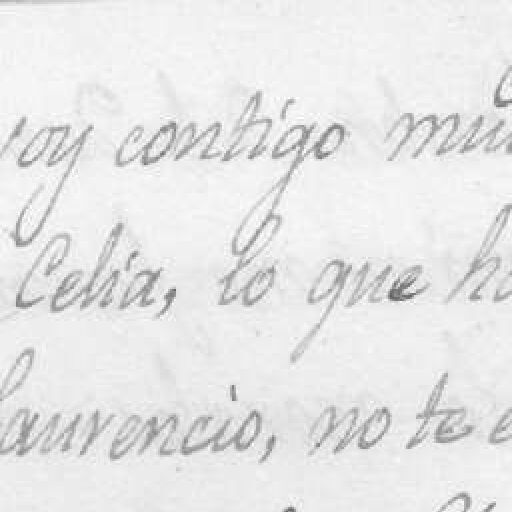 voy contigo mu
Celia, lo que h
Laurencio, no te e